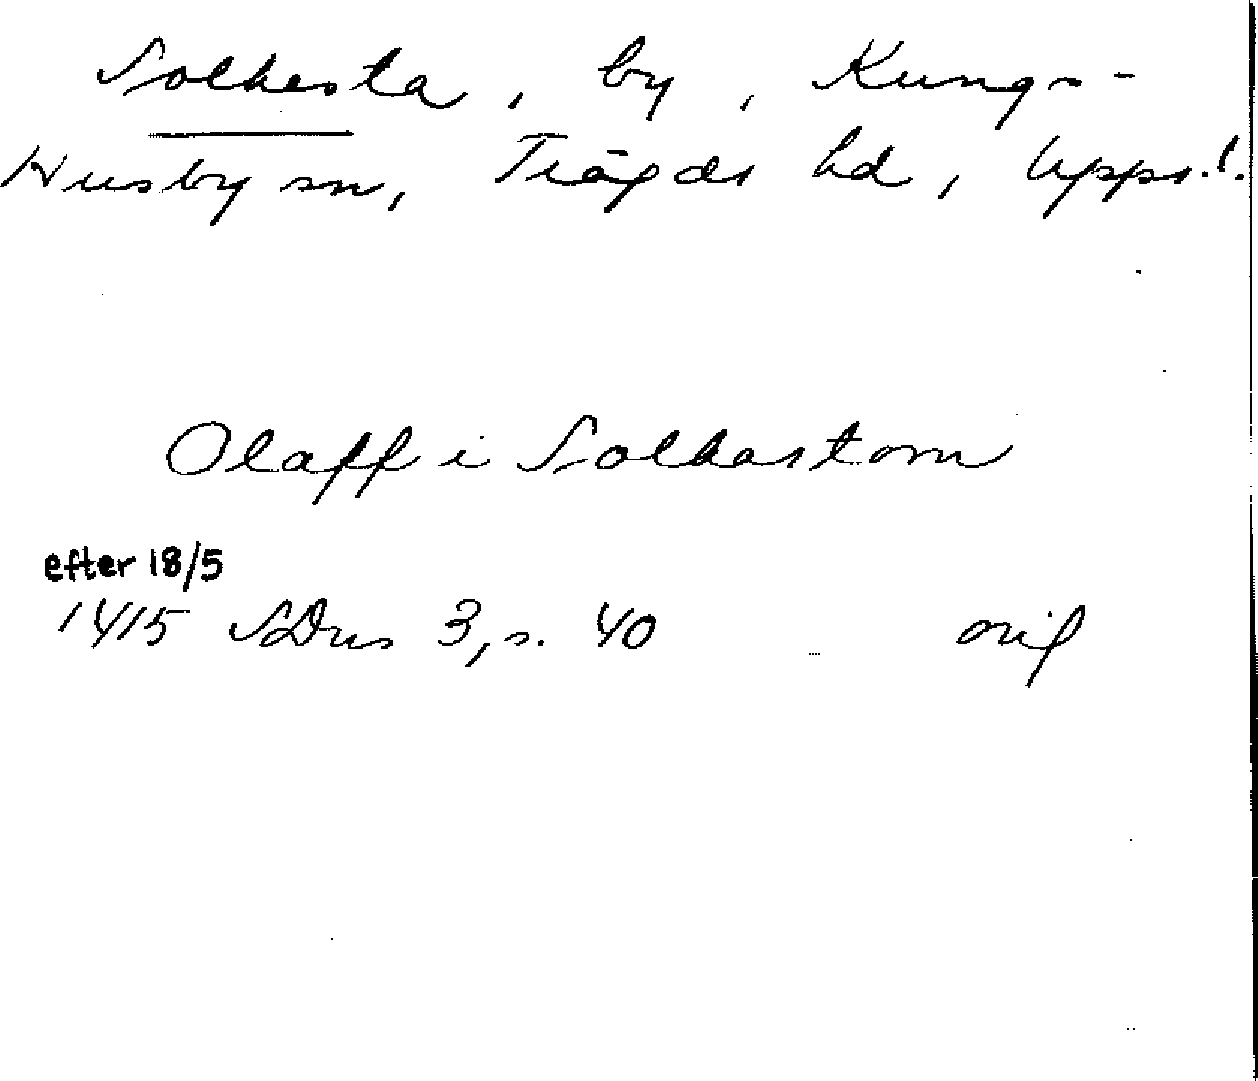 Solhesta, by, Kungs-
Husby sn, Trögds hd, Upps.l.
Olaff i Solhastom
efter 18/5
1415 SDns 3, s. 40 orig